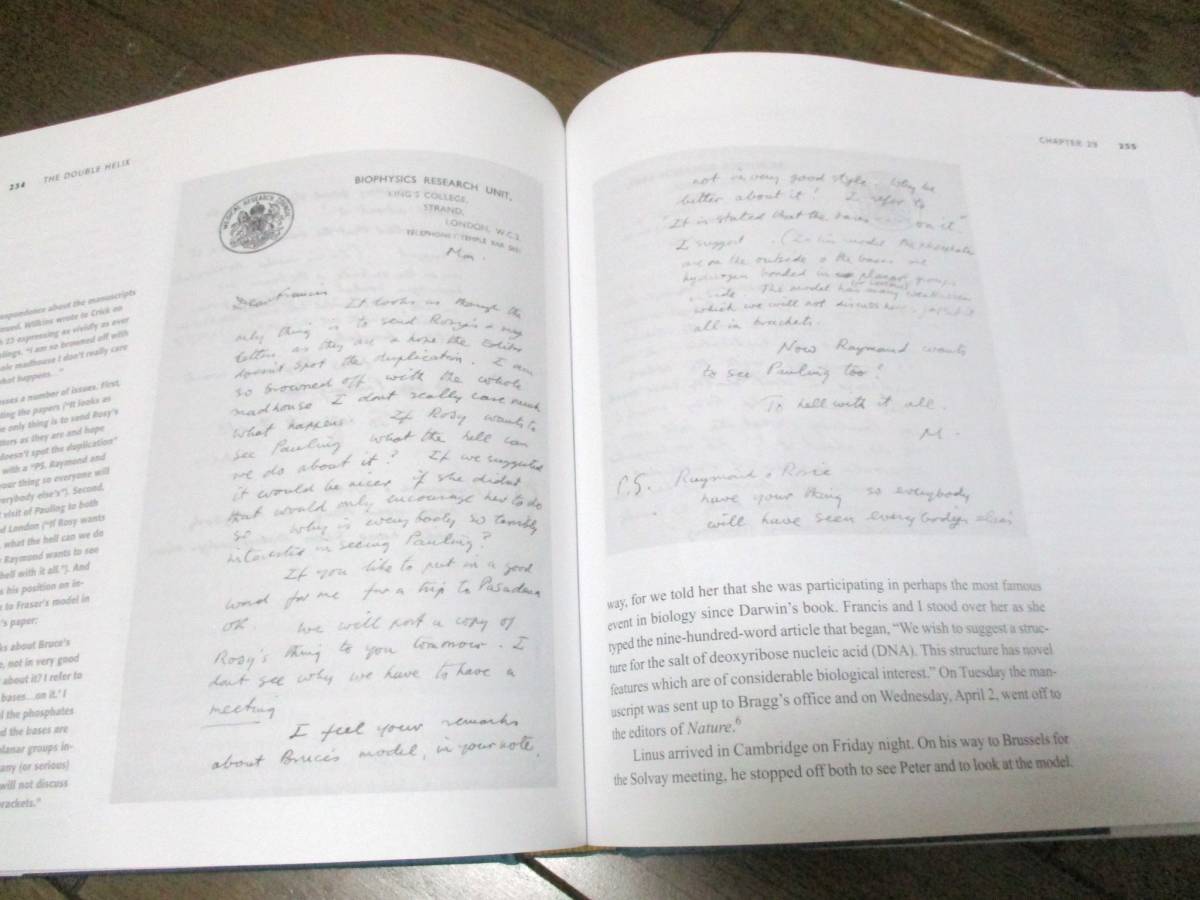 234 THE DOUBLE HELIX
spondence about the manuscripts
Wilkins wrote to Crick on
23 expressing as vividly as ever
lings. "I am so browned off with
ole madhouse I don't really care
hat happens..."
sses a number of issues. First,
ting the papers ("It looks as
e only thing is to send Rosy's
tters as they are and hope
doesn't spot the duplication"
with a "PS. Raymond and
your thing so everyone will
erybody else's"). Second,
visit of Pauling to both
d London ("If Rosy wants
what the hell can we do
Raymond wants to see
hell with it all."). And
s his position on in-
to Fraser's model in
's paper:
ks about Bruce's
e, not in very good
about it? I refer to
bases...on it.' I
l the phosphates
d the bases are
planar groups in-
any (or serious)
will not discuss
rackets."
MEDICAL RESEARCH COUNCIL
BIOPHYSICS RESEARCH UNIT,
KING'S COLLEGE,
STRAND,
LONDON, W.C.2.
TELEPHONE: TEMPLE BAR
Mon.
Dear Francis
It looks as though the
only thing is to send Rosy's & my
letters as they are & hope the Editor
doesn't spot the duplication. I am
so browned off with the whole
madhouse I dont really care much
what happens. If Rosy wants to
see Pauling what the hell can
we do about it? If we suggested
it would be nicer if she didnt
that would only encourage her to do
so Why is everybody so terribly
interested in seeing Pauling?
If you like to put in a good
word for me for a trip to Pasadena
OK. We will post a copy of
Rosy's thing to you tomorrow. I
dont see why we have to have a
meeting
I feel your remarks
about Bruce's model, in your note,
CHAPTER 255
not in very good style. Why be
better about it! I refer to
"It is stated that the bases on it"
I suggest . ( model the phosphates
are on the outside & the bases are
hydrogen bonded in planar groups
inside. The model has many weaknesses
(or serious)
which we will not discuss here
all in brackets.
Now Raymond wants
to see Pauling too!
To hell with it all.
M.
P.S. Raymond & Rosie
have your thing so everybody
will have seen everybody else's
way, for we told her that she was participating in perhaps the most famous
event in biology since Darwin's book. Francis and I stood over her as she
typed the nine-hundred-word article that began, "We wish to suggest a struc-
ture for the salt of deoxyribose nucleic acid (DNA). This structure has novel
features which are of considerable biological interest." On Tuesday the man-
uscript was sent up to Bragg's office and on Wednesday, April 2, went off to
the editors of Nature.6
Linus arrived in Cambridge on Friday night. On his way to Brussels for
the Solvay meeting, he stopped off both to see Peter and to look at the model.